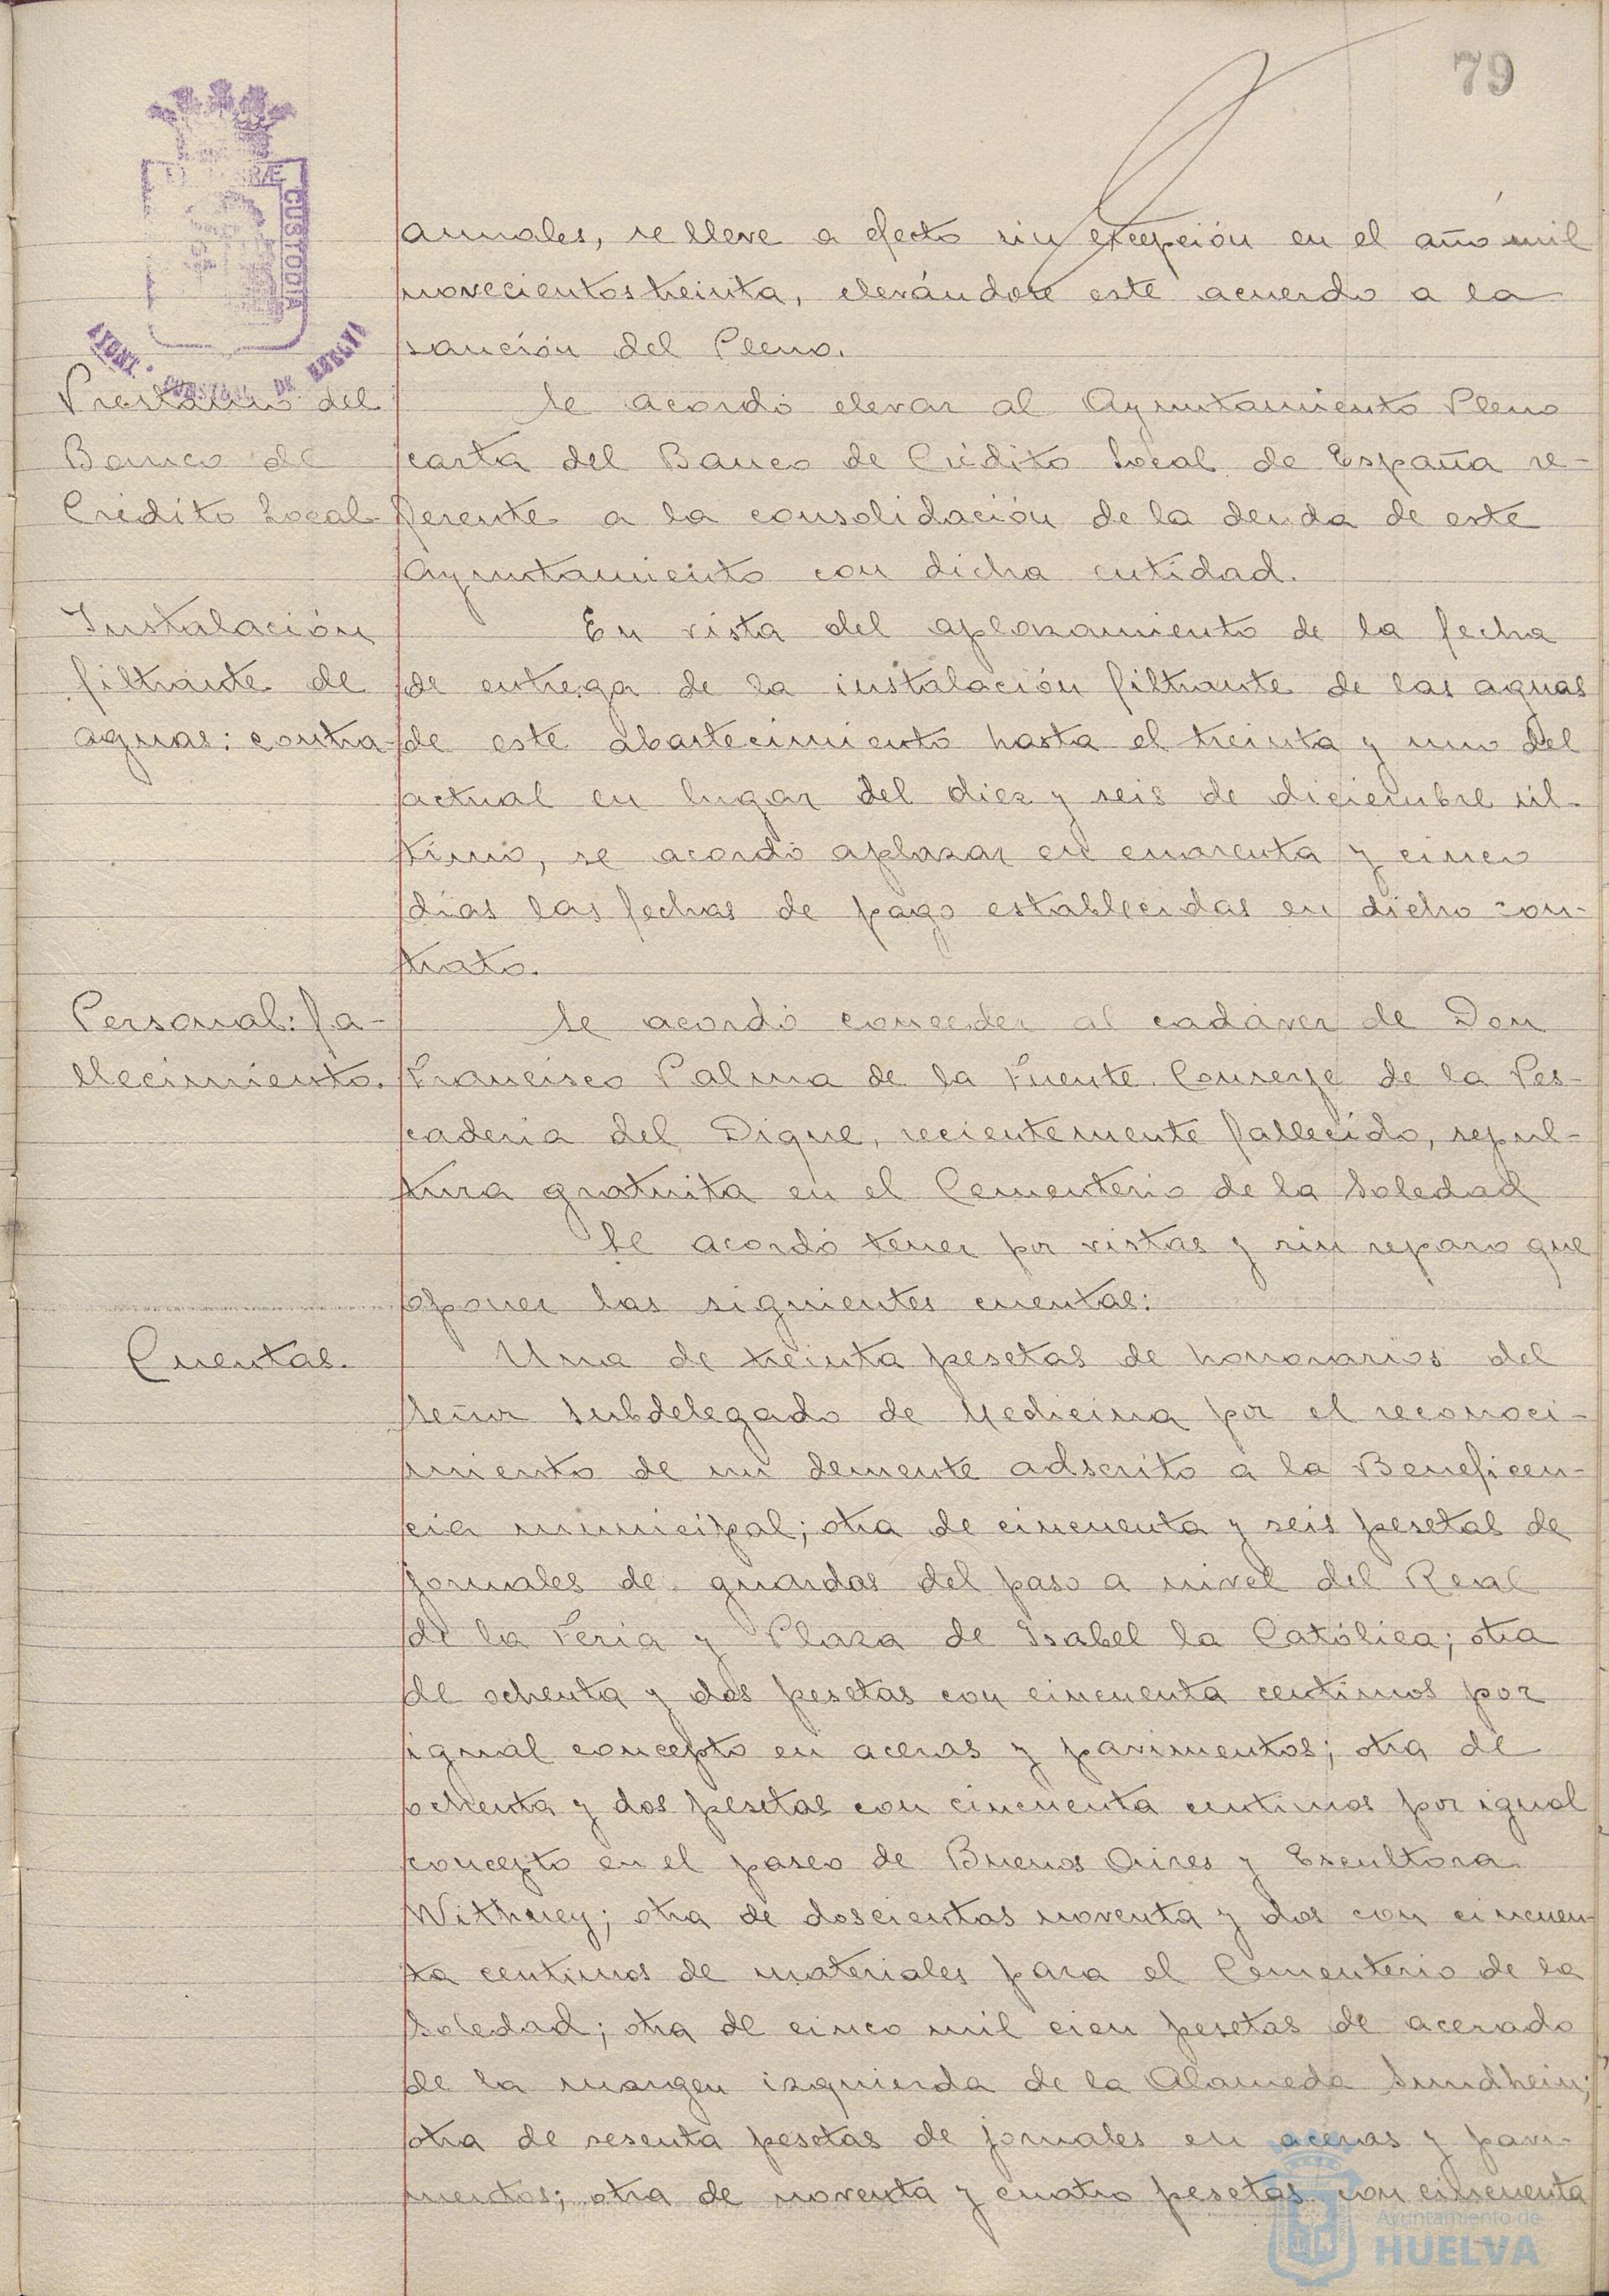 79
anuales, se lleve a efecto sin excepción en el año mil
novecientos treinta, elevándose este acuerdo a la
sanción del Pleno.
Prestamo del
Banco de
Crédito Local
Se acordó elevar al Ayuntamiento Pleno
carta del Banco de Crédito Local de España re-
ferente a la consolidación de la deuda de este
Ayuntamiento con dicha entidad.
Instalación
filtrante de
aguas: contra-
En vista del aplazamiento de la fecha
de entrega de la instalación filtrante de las aguas
de este abastecimiento hasta el treinta y uno del
actual en lugar del diez y seis de diciembre úl-
timo, se acordó aplazar en cuarenta y cinco
días las fechas de pago establecidas en dicho con-
trato.
Personal: fa-
llecimiento.
Se acordó conceder al cadáver de Don
Francisco Palma de la Fuente Conserje de la Pes-
cadería del Dique, recientemente fallecido, sepul-
tura gratuita en el Cementerio de la Soledad
Se acordó tener por vistas y sin reparo que
oponer las siguientes cuentas:
Cuentas.
Una de treinta pesetas de honorarios del
Señor Subdelegado de Medicina por el reconoci-
miento de un demente adscrito a la Beneficen-
cia municipal; otra de cincuenta y seis pesetas de
jornales de guardas del paso a nivel del Real
de la Feria y Plaza de Isabel la Católica; otra
de ochenta y dos pesetas con cincuenta centimos por
igual concepto en aceras y pavimentos; otra de
ochenta y dos pesetas con cincuenta centimos por igual
concepto en el paseo de Buenos Aires y Escultora
Withney; otra de doscientas noventa y dos con cincuen-
ta centimos de materiales para el Cementerio de la
Soledad; otra de cinco mil cien pesetas de acerado
de la margen izquierda de la Alameda Sundhein;
otra de sesenta pesetas de jornales en aceras y pavi-
mentos; otra de noventa y cuatro pesetas con cincuenta
CUSTODIA
DE HUELVA
Ayuntamiento de
HUELVA